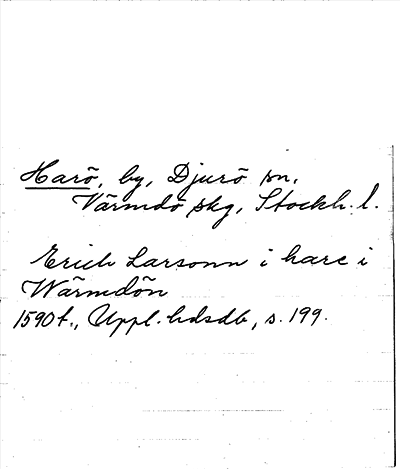 Harö, by, Djurö sn,
Värmdö skg, Stockh. l.
Erich Larsonn i harc i
Wärmdön
1590 t., Uppl. hdsdb, s. 199.